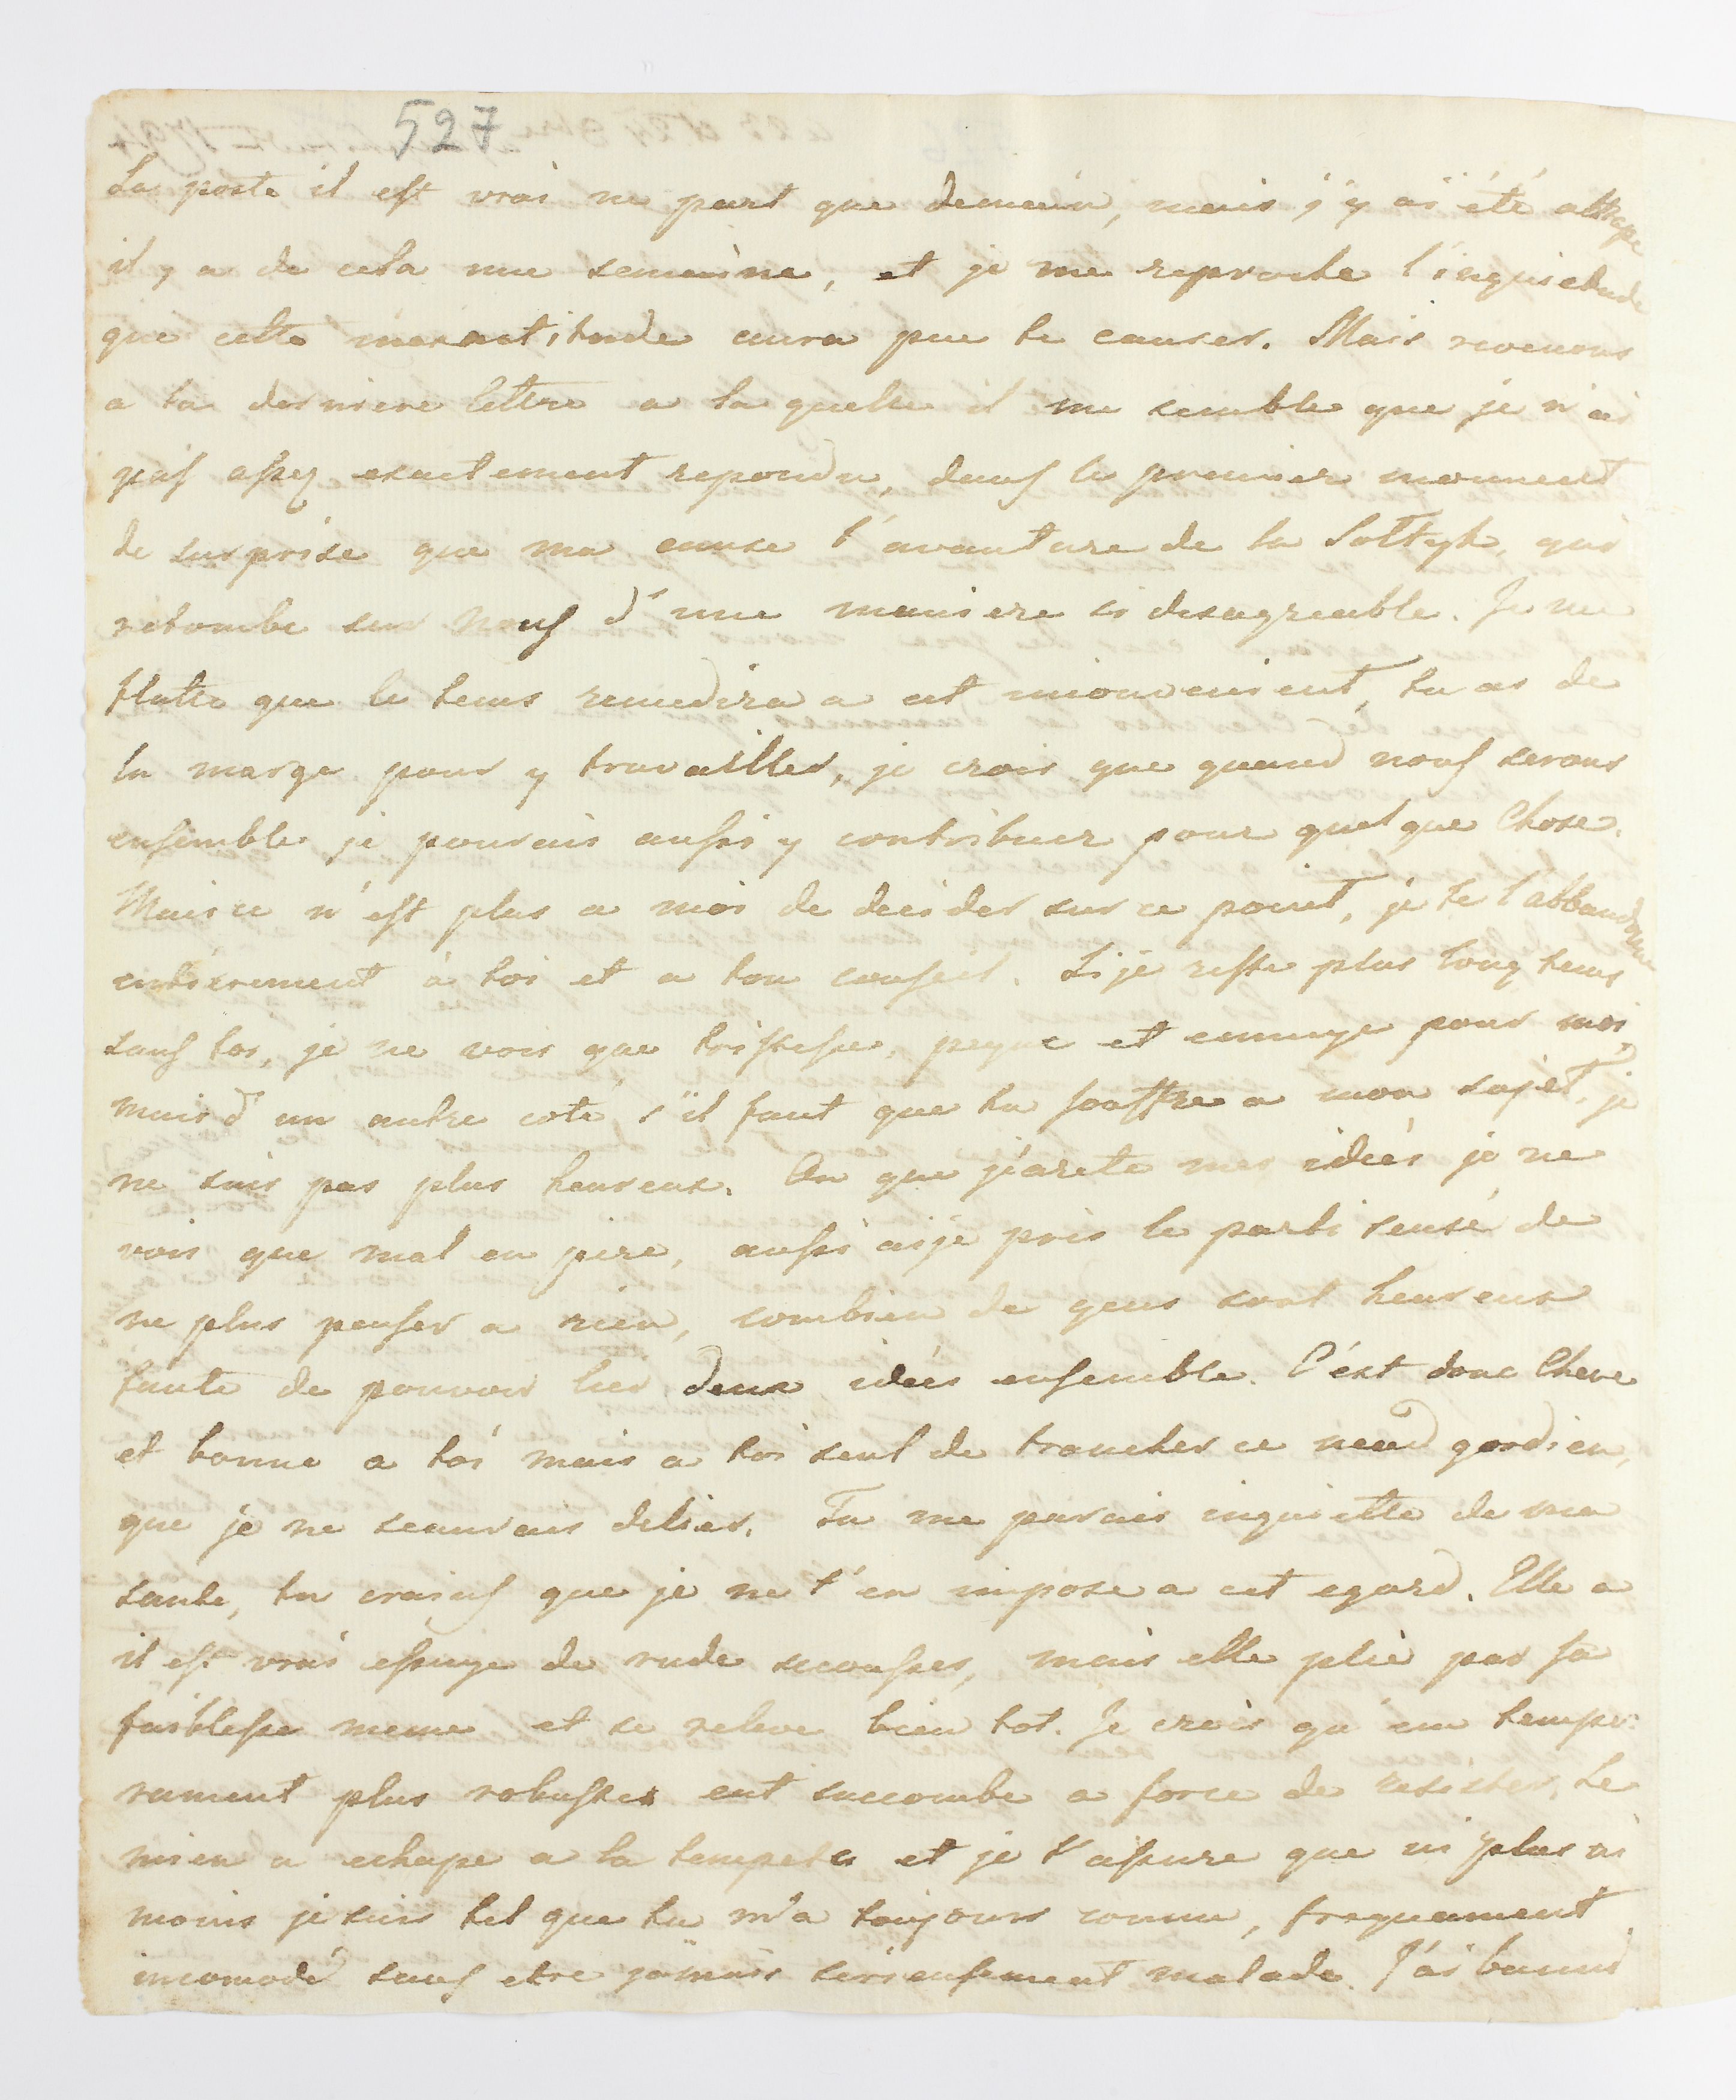 527
La poste il est vrai ne part que demain, mais j'y ai été attrapé
il y a de cela une semaine, et je me reproche l'inquietude
que cette inexactitude aura pue te causer. Mais revenons
a ta derniere lettre a la quelle il me semble que je n'ai
pas assez exactement repondu, dans le premier moment
de surprise que ma cause l'avanture de la Soltyk, qui
retombe sur nous d'une maniere si desagreable. Je me
flatte que le tems remedira a cet inconvenient, tu as de
la marge pour y travailler, je crois que quand nous serons
ensemble je pourais aussi y contribuer pour quelque Chose.
Mais ce n'est plus a moi de decider sur ce point, je te l'abbandonne
entierement à toi et a ton conseil. Si je reste plus longtems
sans toi, je ne vois que tristesse, peyne et ennuye pour moi,
mais d'un autre coté s'il faut que tu souffre a mon sujet, je
ne suis pas plus heureux. Ou que j'arete mes idées je ne
vois que mal en pire, aussi aije pris le parti sensé de
ne plus penser a rien, combien de gens sont heureux
faute de pouvoir lier deux idées ensemble. C'est donc Chere
et bonne a toi mais a toi seul de trancher ce neud gordien,
que je ne scaurais delier. Tu me parais inquiette de ma
sante, tu crains que je ne t'en impose a cet egard. Elle a
il est vrai essuye de rude secousses, mais elle plie par sa
faiblesse meme et se releve bien tot. Je crois qu'un tempe-
rament plus robuste eut succombe a force de resister, le
mien a echape a la tempete et je t'assure que ni plus ni
moins je suis tel que tu m'a toujours connu, frequament
incomodé sans etre jamais serieusement malade. J'ai banni